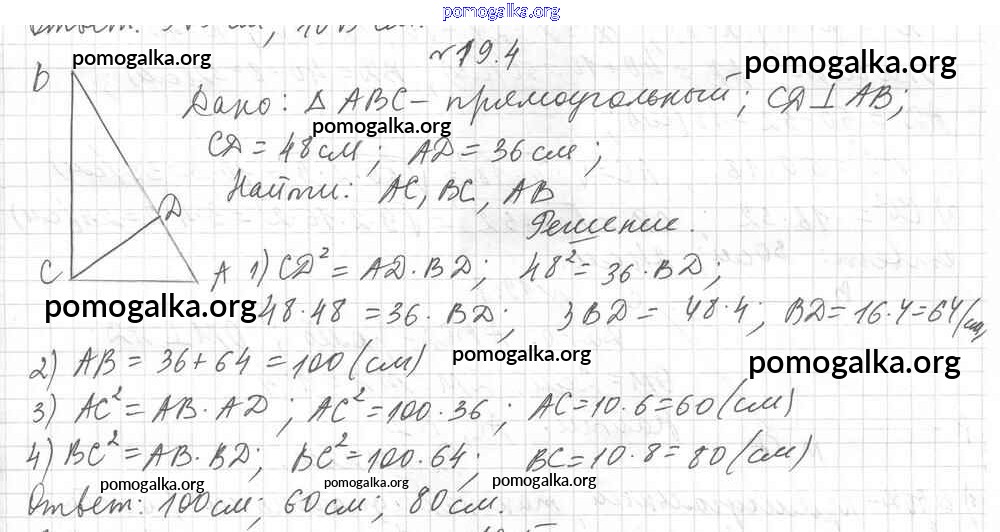 pomogalka.org
№19.4
pomogalka.org pomogalka.org
B
Дано: △ABC – прямоугольный; CD⊥AB;
pomogalka.org
CD = 48см; AD = 36см;
Найти: AC, BC, AB
D
Решение.
C A 1) CD² = AD·BD; 48² = 36·BD;
pomogalka.org
48·48 = 36·BD; 3BD = 48·4; BD = 16·4=64(см)
pomogalka.org pomogalka.org
2) AB = 36+64 = 100(см)
3) AC² = AB·AD; AC² = 100·36; AC = 10·6 = 60(см)
4) BC² = AB·BD; BC² = 100·64; BC = 10·8 = 80(см)
pomogalka.org pomogalka.org pomogalka.org
Ответ: 100см; 60см; 80см.